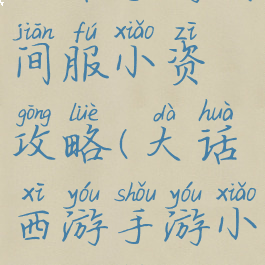 jiān fú xiǎo zī
间服小资
gōng lüè dà huà
攻略(大话
xī yóu shǒu yóu xiǎo
西游手游小